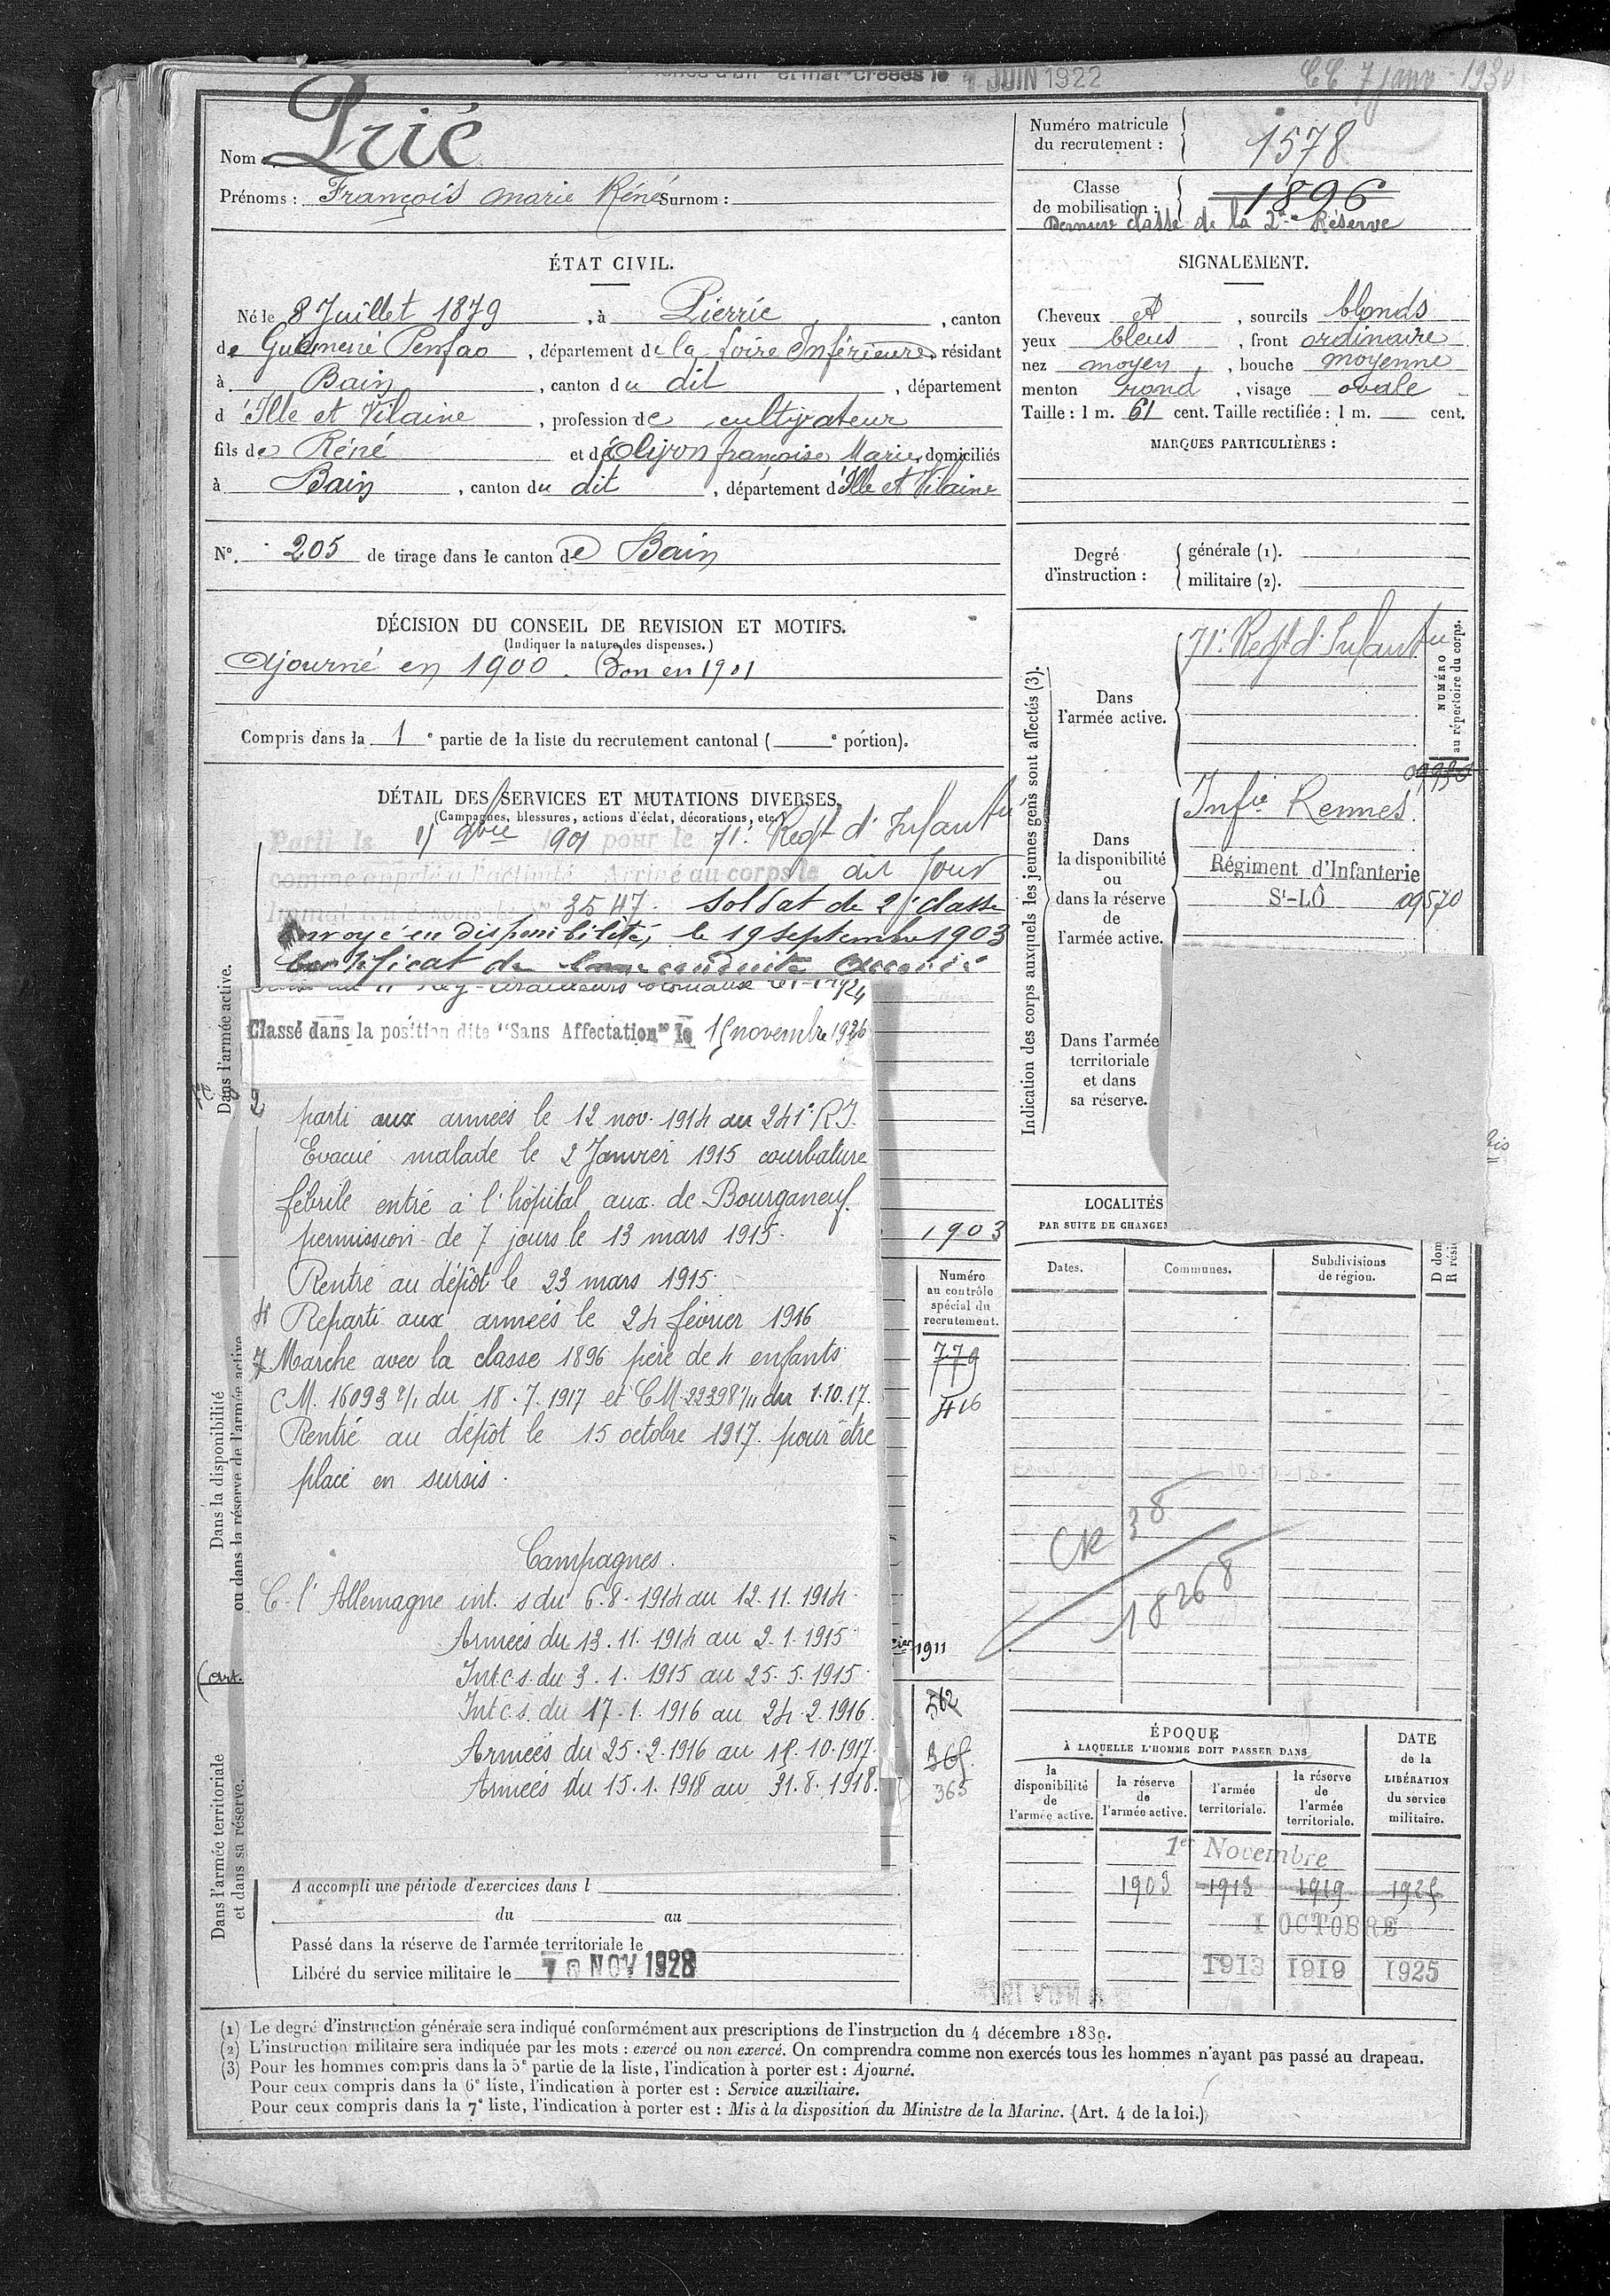 créées le 1 JUIN 1922
CC 7 janv 1930
Nom : Prié
Prénoms : François Marie Réné Surnom :
Numéro matricule du recrutement : 1578
Classe de mobilisation : 1896
Dernière classe de la 2me Réserve
ÉTAT CIVIL.
Né le 8 Juillet 1879, à Pierric, canton
de Guéméné Penfao, département de la Loire Inférieure, résidant
à Bain, canton du dit, département
d'Ille et Vilaine, profession de cultivateur
fils de Réné et de Olivon françoise Marie, domiciliés
à Bain, canton du dit, département d'Ille et Vilaine
N°. 205 de tirage dans le canton de Bain
SIGNALEMENT.
Cheveux et, sourcils blonds
yeux bleus, front ordinaire
nez moyen, bouche moyenne
menton rond, visage ovale
Taille : 1 m. 61 cent. Taille rectifiée : 1 m. — cent.
MARQUES PARTICULIÈRES :
Degré d'instruction :
générale (1).
militaire (2).
DÉCISION DU CONSEIL DE REVISION ET MOTIFS.
(Indiquer la nature des dispenses.)
Ajourné en 1900. Bon en 1901
Compris dans la 1e partie de la liste du recrutement cantonal ( e portion).
DÉTAIL DES SERVICES ET MUTATIONS DIVERSES.
(Campagnes, blessures, actions d'éclat, décorations, etc.)
Parti le 15 9bre 1901 pour le 71e Regt d'Infantie
comme appelé à l'activité. Arrivé au corps le dit jour
Immatriculé sous le No 3547. Soldat de 2e classe
Envoyé en disponibilité, le 19 septembre 1903
Certificat de bonne conduite accordé
1924
Classé dans la position dite "Sans Affectation" le 15 novembre 1926
2
parti aux armées le 12 nov. 1914 au 241e R.I.
Evacué malade le 2 Janvier 1915 courbature
fébrile entré à l'hôpital aux. de Bourganeuf.
permission de 7 jours le 13 mars 1915.
Rentré au dépôt le 23 mars 1915.
4 Reparti aux armées le 24 février 1916
7 Marche avec la classe 1896 père de 4 enfants
CM. 16093 2/1 du 18.7.1917 et CM 22398 1/11 du 1.10.17.
Rentré au dépôt le 15 octobre 1917 pour être
placé en sursis.
Campagnes.
C. l'Allemagne int. s du 6.8.1914 au 12.11.1914.
Armées du 13.11.1914 au 2.1.1915
Int.c.s. du 3.1.1915 au 25.5.1915.
Int.c.s. du 17.1.1916 au 24.2.1916.
Armées du 25.2.1916 au 15.10.1917.
Armées du 15.1.1918 au 31.8.1918.
Dans l'armée active.
Dans la disponibilité
ou dans la réserve de l'armée active
(art.
Dans l'armée territoriale
et dans sa réserve.
1903
Numéro
au contrôle
spécial du
recrutement.
779
416
1911
562
365
365
A accompli une période d'exercices dans l
du au
Passé dans la réserve de l'armée territoriale le
Libéré du service militaire le 10 NOV 1928
Indication des corps auxquels les jeunes gens sont affectés (3).
Dans
l'armée active.
71e Regt d'Infantie
NUMÉRO
au répertoire du corps.
09930
Dans
la disponibilité
ou
dans la réserve
de
l'armée active.
Infie Rennes.
Régiment d'Infanterie
St-LÔ 09570
Dans l'armée
territoriale
et dans
sa réserve.
LOCALITÉS
PAR SUITE DE CHANGE
Dates.
Communes.
Subdivisions
de région.
D dom
R rési
CR 38
18268
ÉPOQUE
À LAQUELLE L'HOMME DOIT PASSER DANS
la
disponibilité
de
l'armée active.
la réserve
de
l'armée active.
l'armée
territoriale.
la réserve
de
l'armée
territoriale.
DATE
de la
LIBÉRATION
du service
militaire.
1er Novembre
1903 1913 1919 1925
1 OCTOBRE
1913 1919 1925
(1) Le degré d'instruction générale sera indiqué conformément aux prescriptions de l'instruction du 4 décembre 1889.
(2) L'instruction militaire sera indiquée par les mots : exercé ou non exercé. On comprendra comme non exercés tous les hommes n'ayant pas passé au drapeau.
(3) Pour les hommes compris dans la 5e partie de la liste, l'indication à porter est : Ajourné.
Pour ceux compris dans la 6e liste, l'indication à porter est : Service auxiliaire.
Pour ceux compris dans la 7e liste, l'indication à porter est : Mis à la disposition du Ministre de la Marine. (Art. 4 de la loi.)